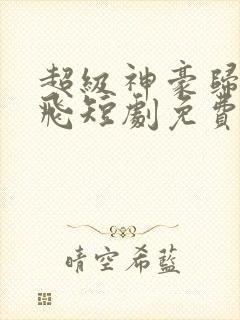 超級神豪歸
飛短劇免費
晴空希藍